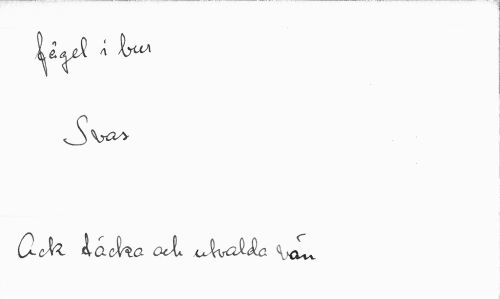 fågel i bur
Svas
Ack täcka och utvalda vän